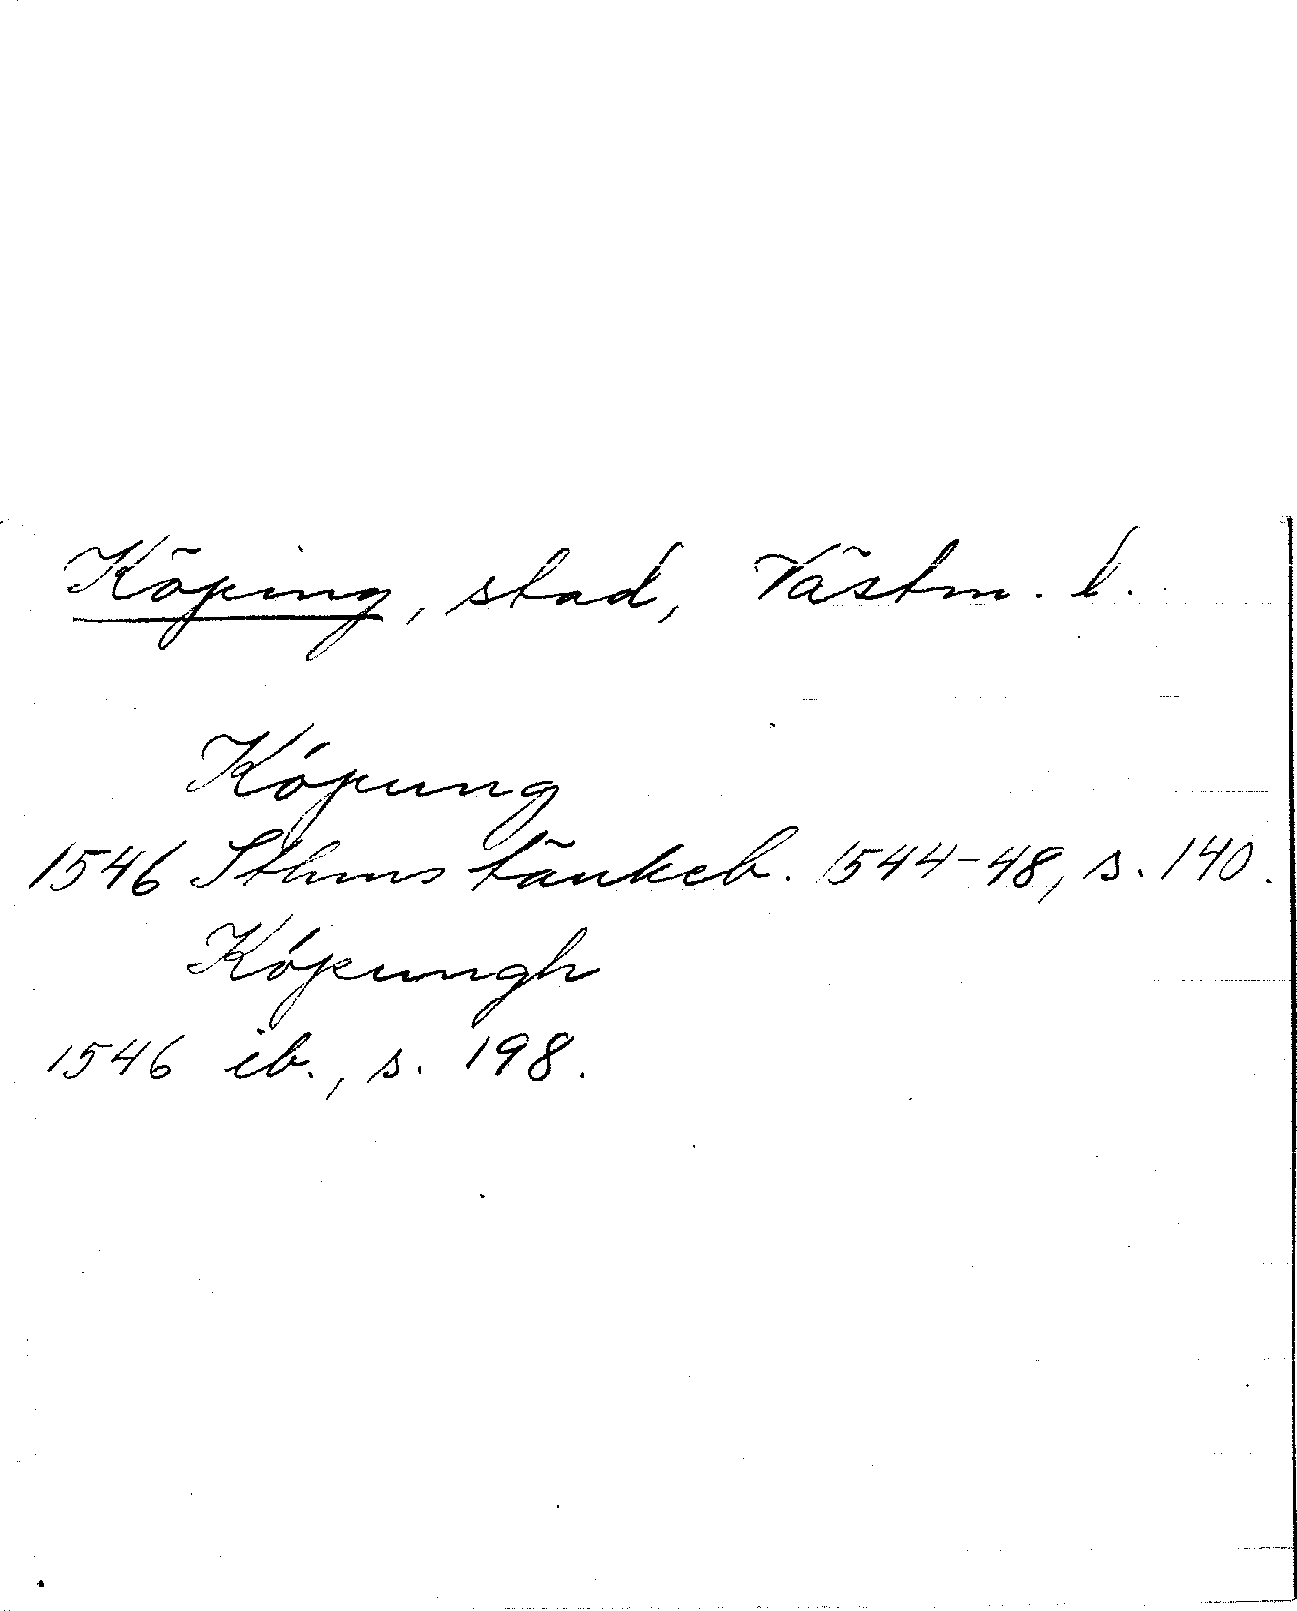 Köping, stad, Västm. l.
Kópung
1546 Sthms tänkeb. 1544-48, s. 140.
Kópungh
1546 ib., s. 198.